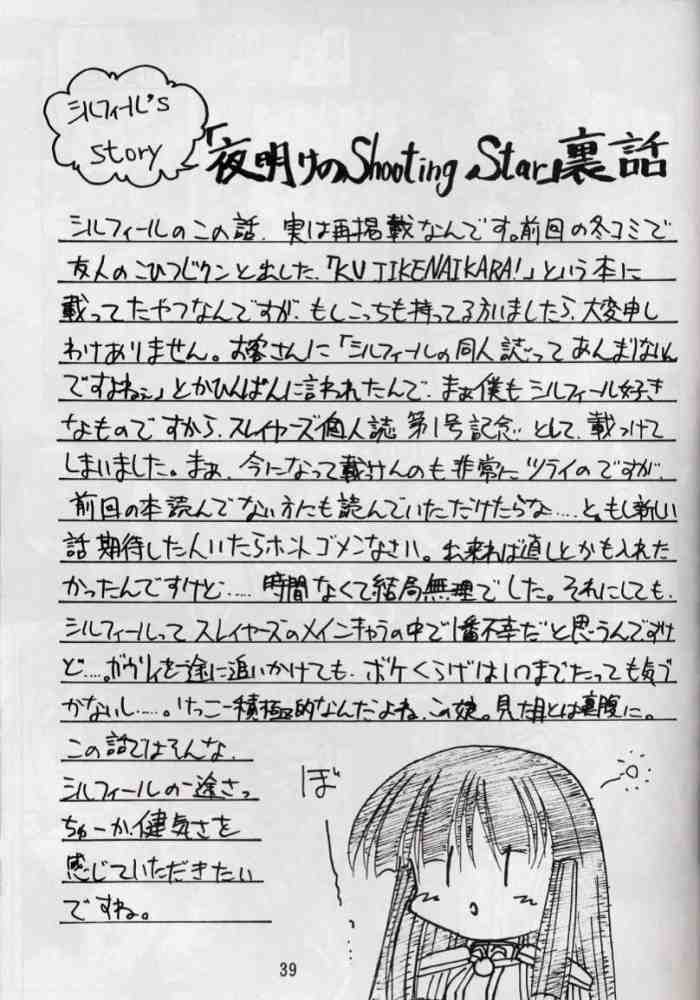 シルフィール's
story
「夜明けのShooting Star」裏話
シルフィールのこの話、実は再掲載なんです。前回の冬コミで
友人のこひつじクンと出した、「KUJIKENAIKARA!」という本に
載ってたやつなんですが、もしこっちも持ってる方いましたら、大変申し
わけありません。お客さんに「シルフィールの同人誌ってあんまりないん
ですよねぇ」とかひんぱんに言われたんで、まぁ僕もシルフィール好き
なものですから、スレイヤーズ個人誌第1号記念として、載っけて
しまいました。まぁ、今になって載せんのも非常にツライのですが、
前回の本読んでない方にも読んでいただけたらな……と。もし新しい
話期待した人いたらホントゴメンなさい。出来れば直しとかも入れた
かったんですけど……時間なくて結局無理でした。それにしても、
シルフィールってスレイヤーズのメインキャラの中で1番不幸だと思うんですけ
ど……。ガウリイを一途に追いかけても、ボケくらげはいつまでたっても気づ
かないし……。けっこー積極的なんだよね、この娘。見た目とは裏腹に。
この話ではそんな、
シルフィールの一途さっ
ちゅーか、健気さを
感じていただきたい
ですね。
ぼ
39